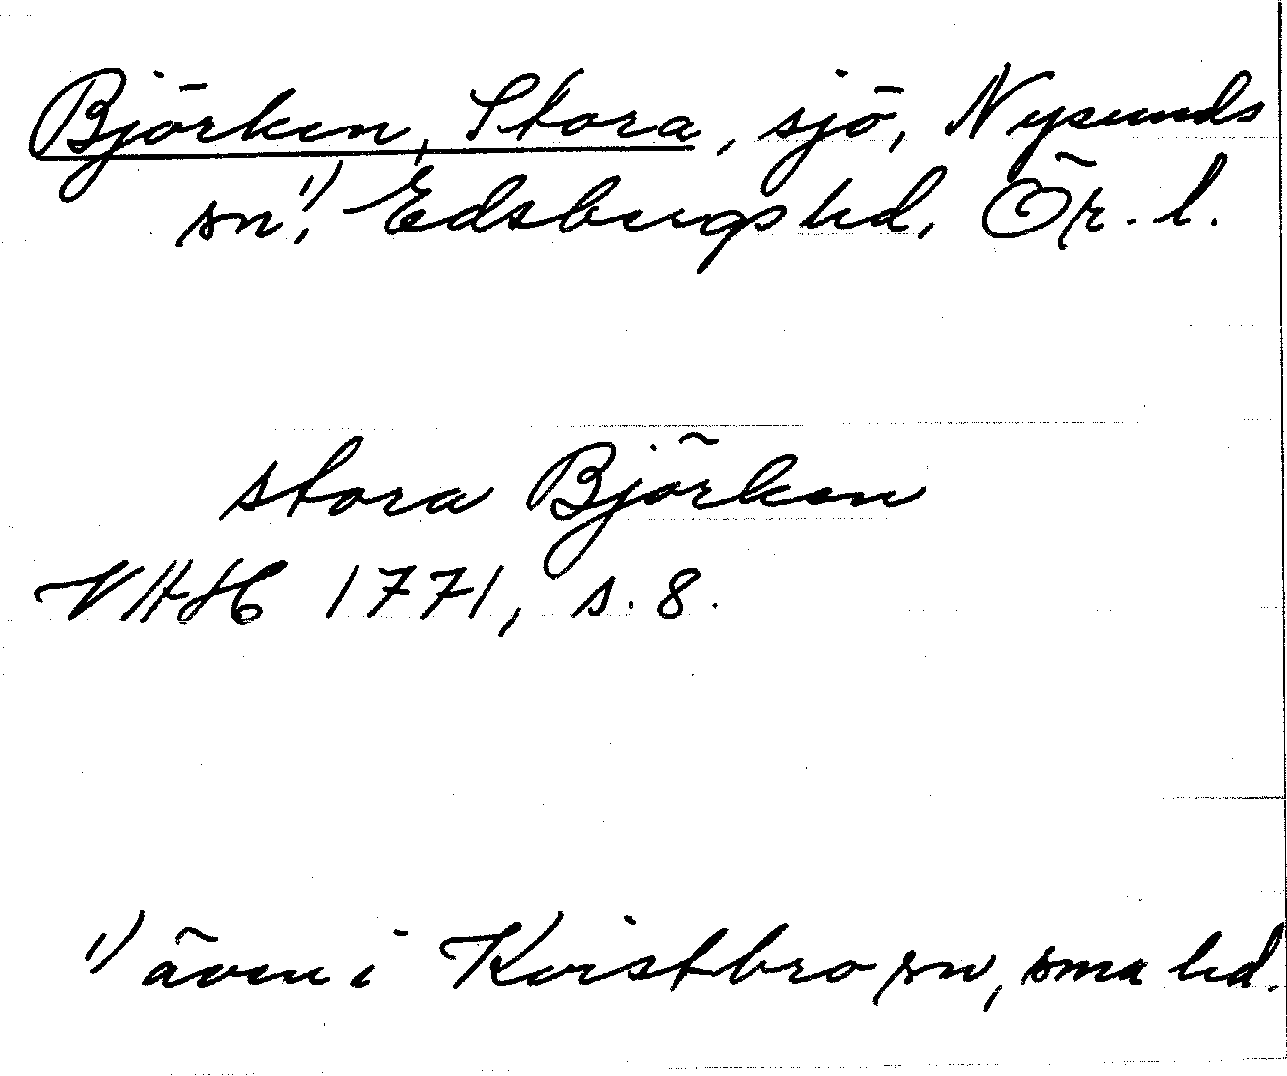 Björken, Stora, sjö, Nysunds
sn¹⁾, Edsbergs hd, Ör. l.
stora Björken
VAH 1771, s. 8.
¹⁾ även i Kvistbro sn, sma hd.